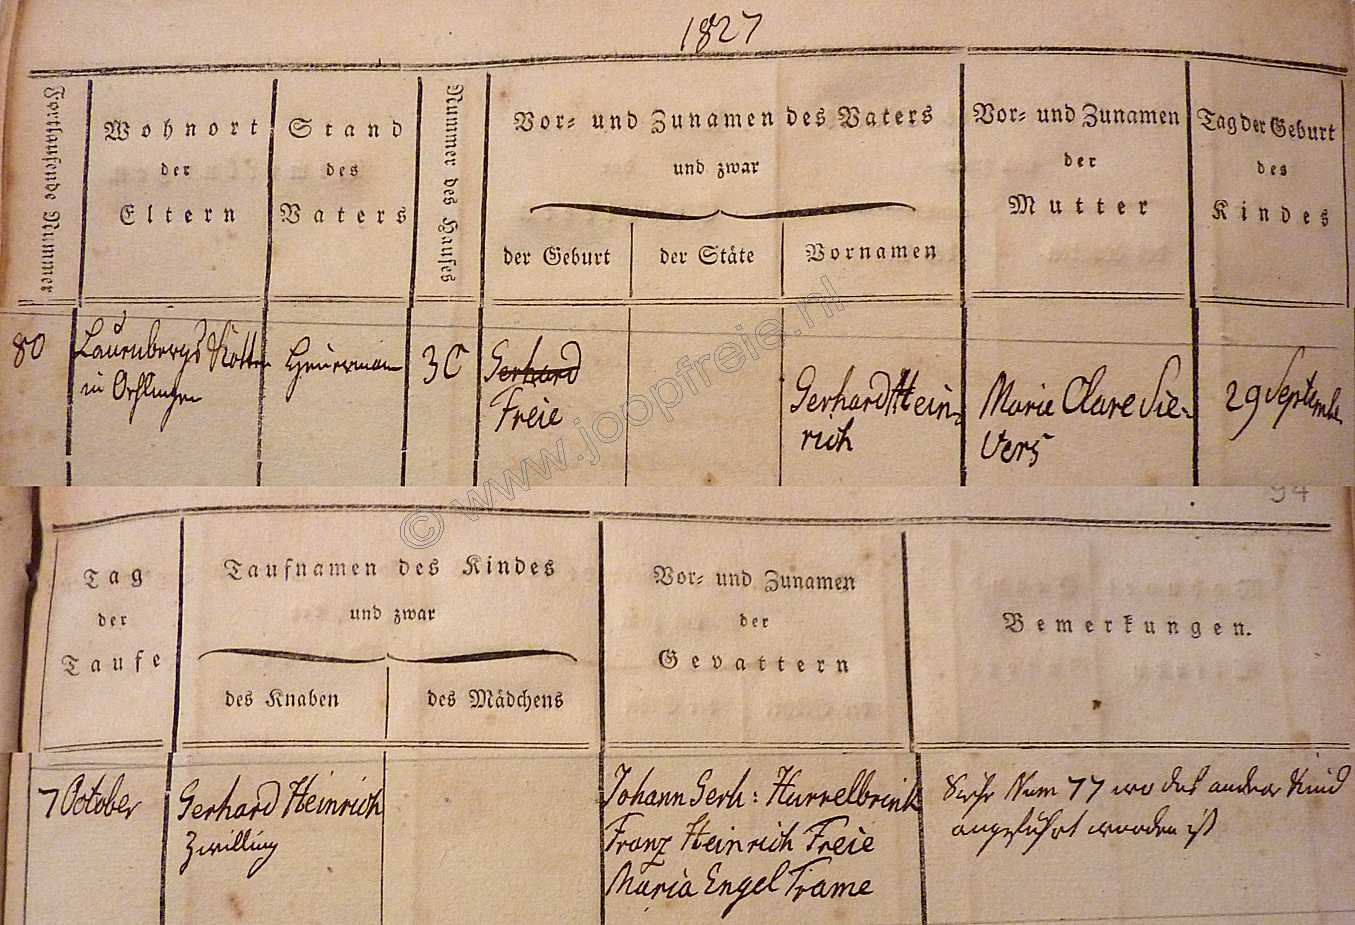 1827
Fortlaufende Nummer
Wohnort
der
Eltern
Stand
des
Vaters
Nummer des Hauses
Vor- und Zunamen des Vaters
und zwar
der Geburt
der Stäte
Vornamen
Vor- und Zunamen
der
Mutter
Tag der Geburt
des
Kindes
80
Laurenbergs Kotten
in Oehlingen
Heuermann
3C
Gerhard
Freie
Gerhard Hein-
rich
Marie Clare Sie-
vers
29 September
© www.joopfreie.nl
94
Tag
der
Taufe
Taufnamen des Kindes
und zwar
des Knaben
des Mädchens
Vor- und Zunamen
der
Gevattern
Bemerkungen.
7 October
Gerhard Heinrich
Zwilling
Johann Gerh: Hurrelbrink
Franz Heinrich Freie
Maria Engel Trame
Siehe Num 77 wo das andere Kind
angeführt worden ist